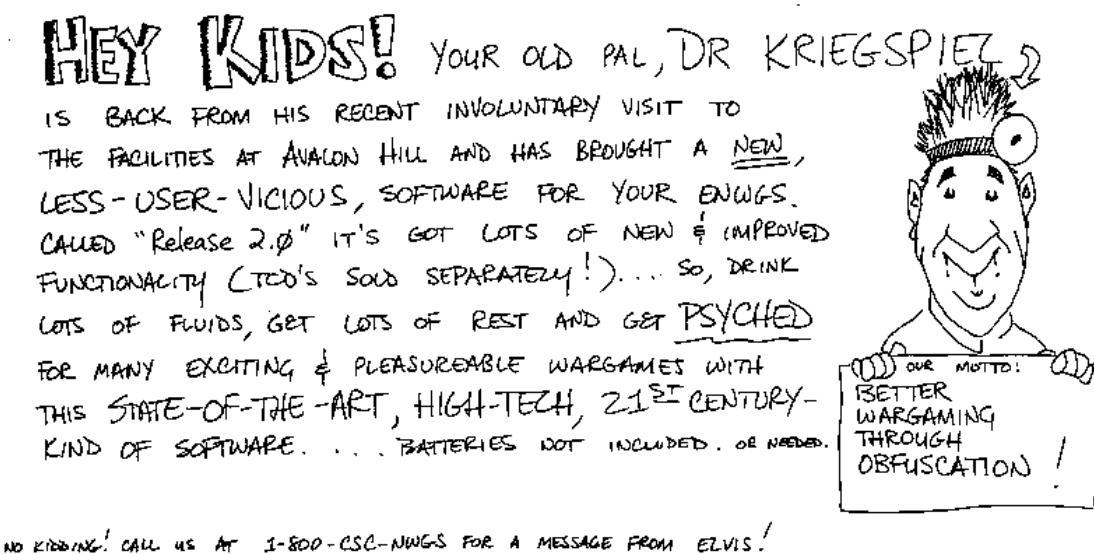 HEY KIDS! YOUR OLD PAL, DR KRIEGSPIEL
IS BACK FROM HIS RECENT INVOLUNTARY VISIT TO
THE FACILITIES AT AVALON HILL AND HAS BROUGHT A NEW,
LESS-USER-VICIOUS, SOFTWARE FOR YOUR ENWGS.
CALLED "Release 2.0" IT'S GOT LOTS OF NEW & IMPROVED
FUNCTIONALITY (TCD'S SOLD SEPARATELY!).... SO, DRINK
LOTS OF FLUIDS, GET LOTS OF REST AND GET PSYCHED
FOR MANY EXCITING & PLEASUREABLE WARGAMES WITH
THIS STATE-OF-THE-ART, HIGH-TECH, 21ST CENTURY-
KIND OF SOFTWARE. ... BATTERIES NOT INCLUDED. OR NEEDED.
OUR MOTTO:
BETTER
WARGAMING
THROUGH
OBFUSCATION!
NO KIDDING! CALL US AT 1-800-CSC-NWGS FOR A MESSAGE FROM ELVIS!